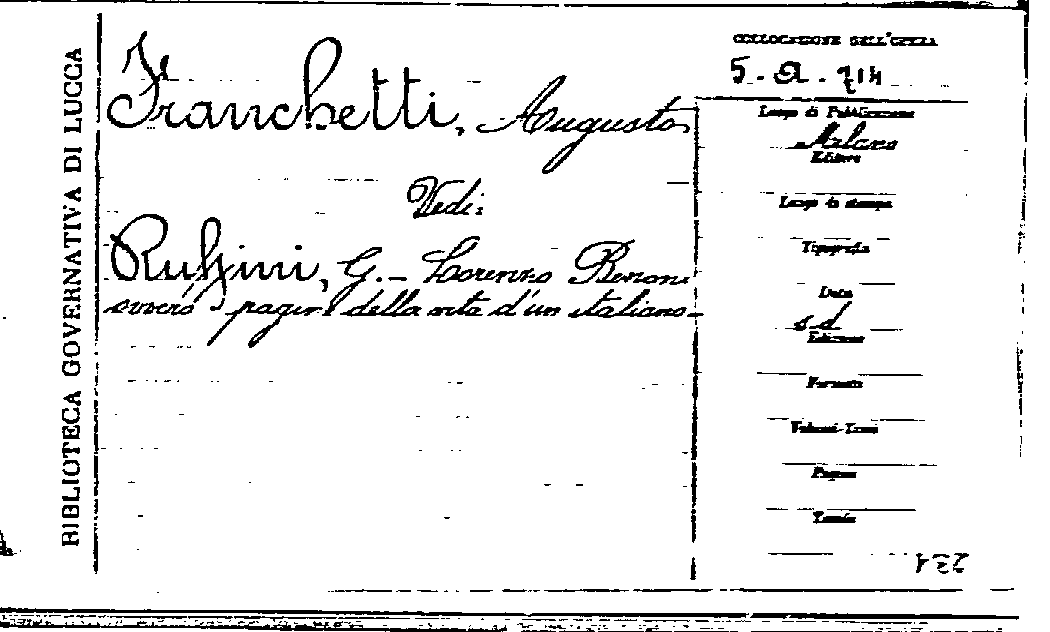 BIBLIOTECA GOVERNATIVA DI LUCCA
Franchetti, Augusto
Vedi:
Ruffini, G. - Lorenzo Benoni
ovverò pagine della vita d'un italiano -
COLLOCAZIONE DELL'OPERA
5. a. 714
Luogo di Pubblicazione
Milano
Editore
Luogo di stampa
Tipografia
Data
s d
Edizione
Formato
Volumi-Tomi
Pagine
Tavole